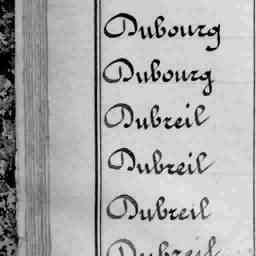 Dubourg
Dubourg
Dubreil
Dubreil
Dubreil
Dubreil